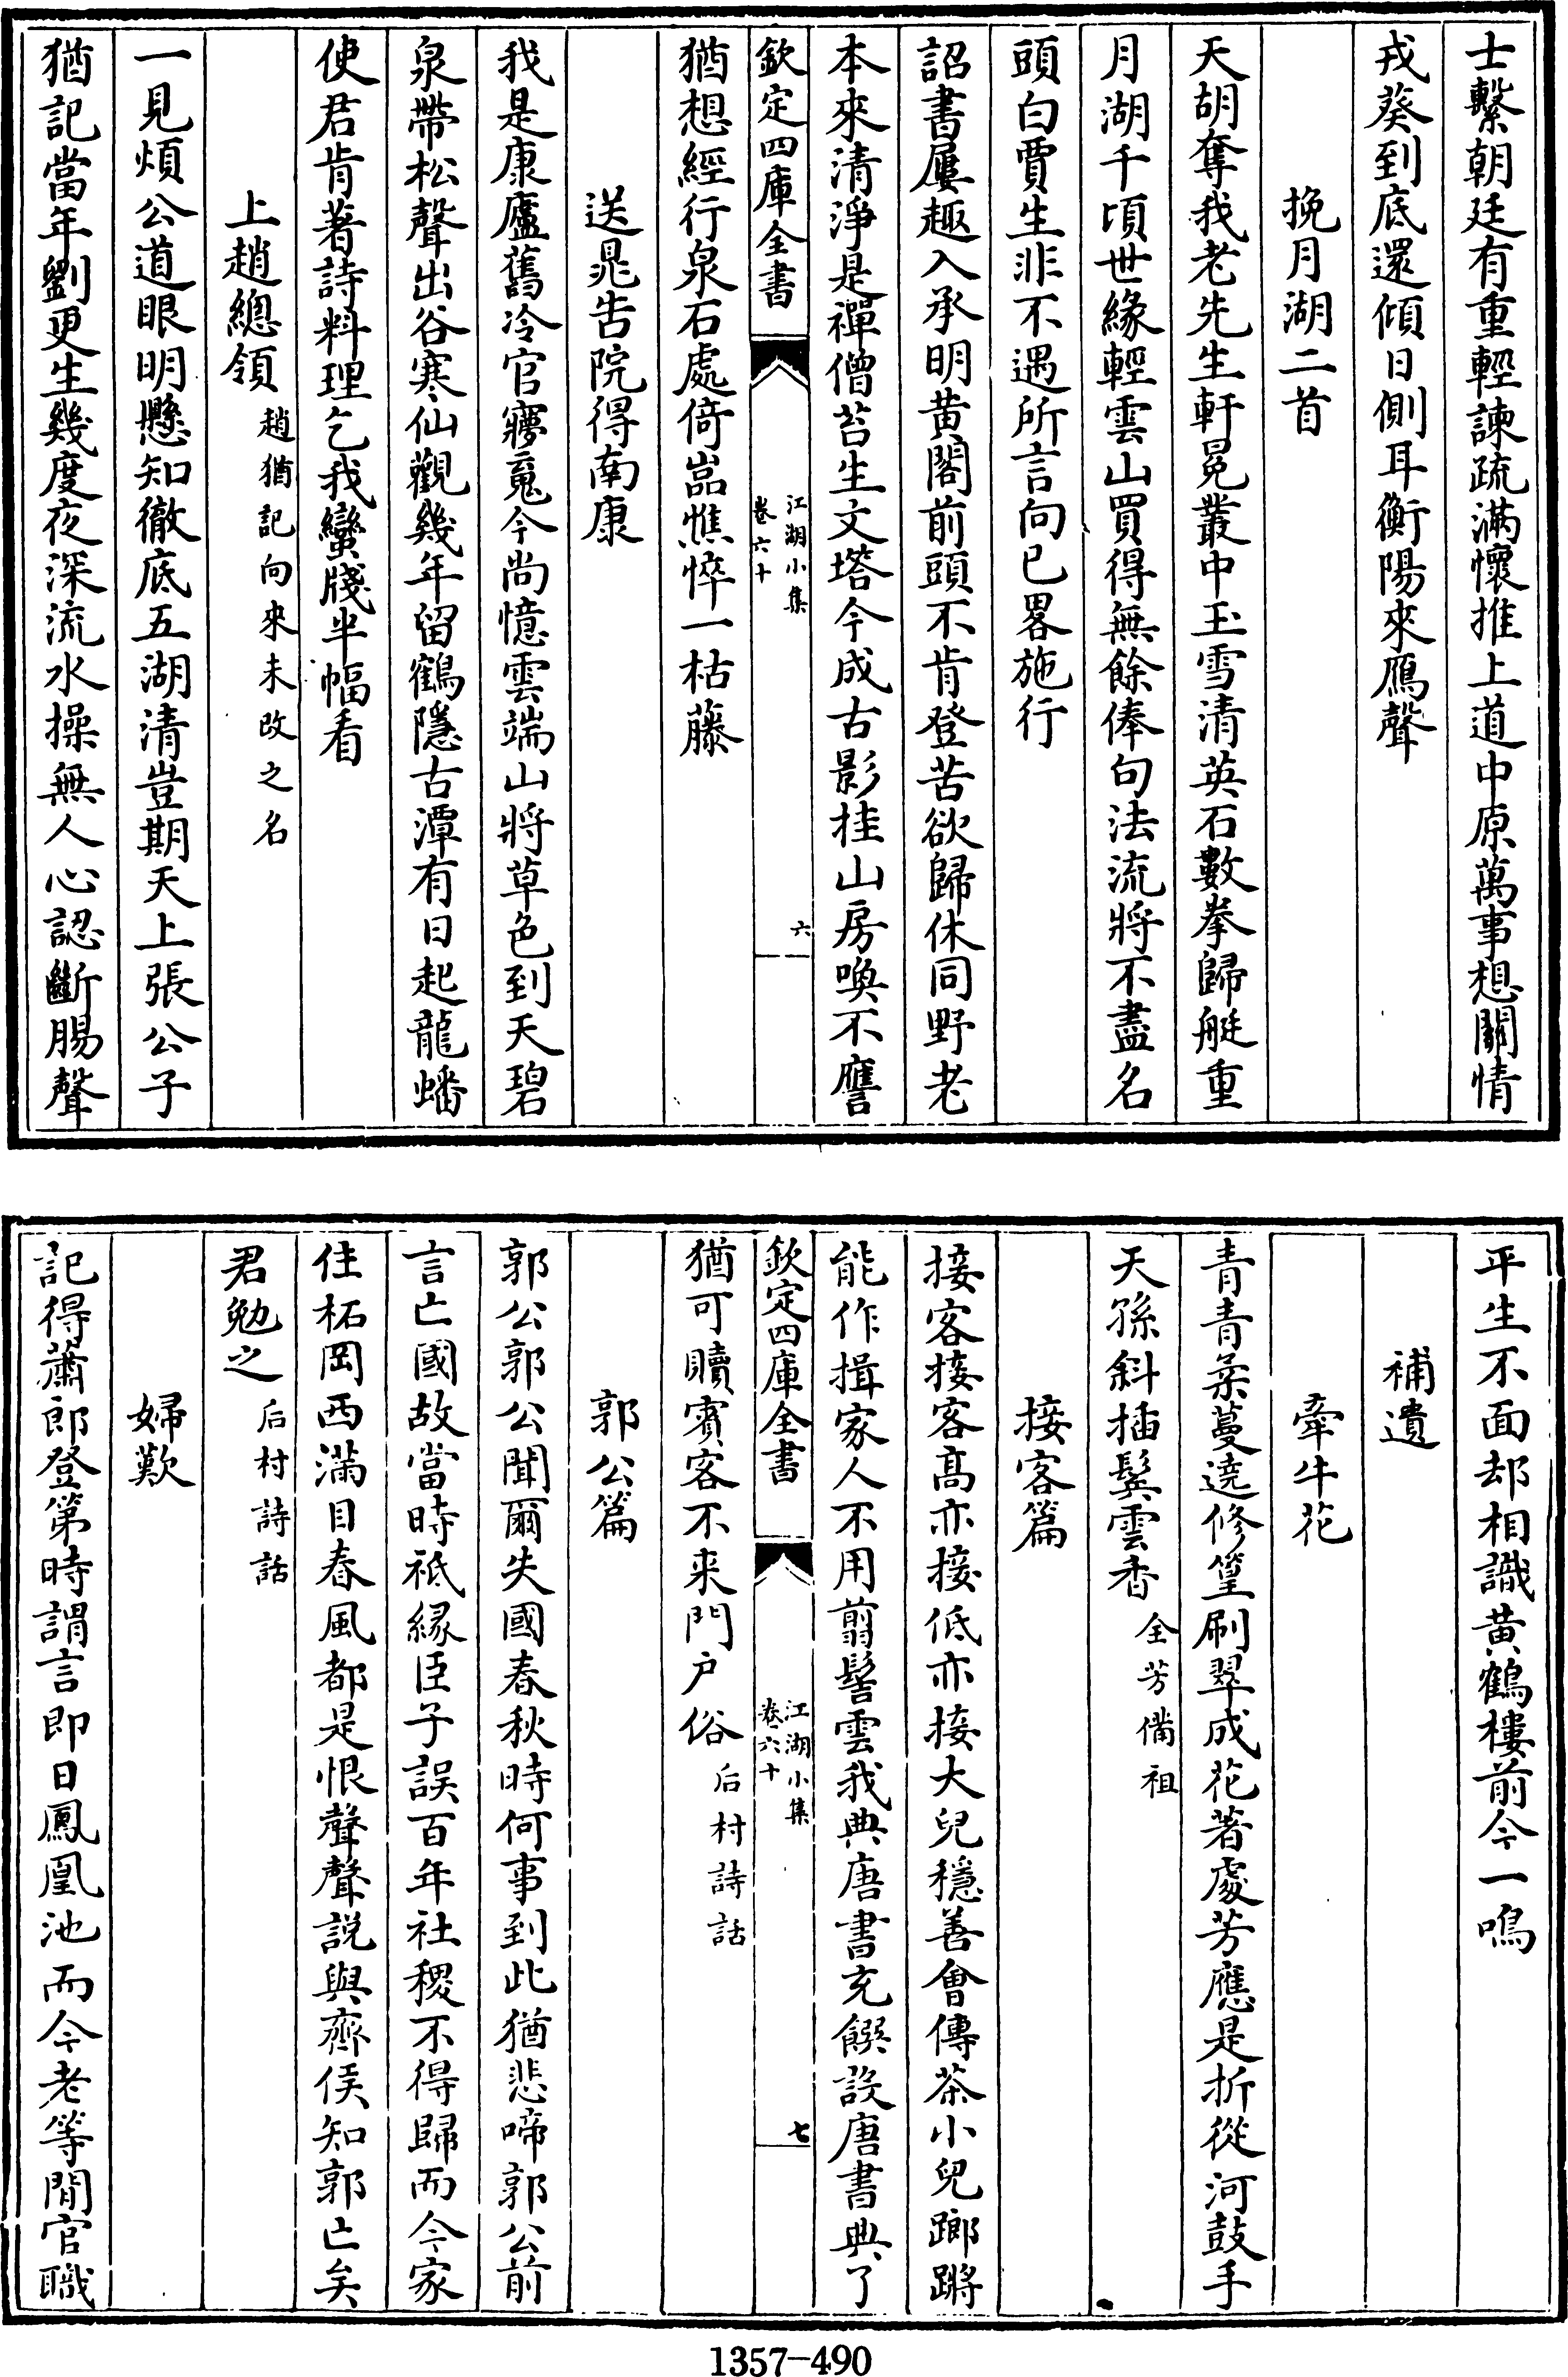 士繫朝廷有重輕諫疏滿懷推上道中原萬事想關情
戎葵到底還傾日側耳衡陽來鴈聲
挽月湖二首
天胡奪我老先生軒冕叢中玉雪清英石數拳歸艇重
月湖千頃世緣輕雲山買得無餘俸句法流將不盡名
頭白賈生非不遇所言向已畧施行
詔書屢趣入承明黄閣前頭不肯登苦欲歸休同野老
本來清淨是禪僧苔生文塔今成古影挂山房喚不譍
欽定四庫全書
江湖小集
卷六十
六
猶想經行泉石處倚嵓憔悴一枯藤
送晁告院得南康
我是康廬舊冷官寢夢今尚憶雲端山將草色到天碧
泉帶松聲出谷寒仙觀幾年留鶴隱古潭有日起龍蟠
使君肯著詩料理乞我蠻牋半幅看
上趙總領
趙猶記向來未改之名
一見煩公道眼明懸知徹底五湖清豈期天上張公子
猶記當年劉更生幾度夜深流水操無人心認斷腸聲
平生不面却相識黄鶴樓前今一鳴
補遺
牽牛花
青青柔蔓遶修篁刷翠成花著處芳應是折從河鼓手
天孫斜插鬂雲香
全芳備祖
接客篇
接客接客高亦接低亦接大兒穩善會傳茶小兒踉蹡
能作揖家人不用翦髻雲我典唐書充饌設唐書典了
欽定四庫全書
江湖小集
卷六十
七
猶可贖賓客不来門户俗
后村詩話
郭公篇
郭公郭公聞爾失國春秋時何事到此猶悲啼郭公前
言亡國故當時祗緣臣子誤百年社稷不得歸而今家
住柘岡西滿目春風都是恨聲聲説與齊侯知郭亡矣
君勉之
后村詩話
婦歎
記得蕭郎登第時謂言即日鳳凰池而今老等閒官職
1357-490